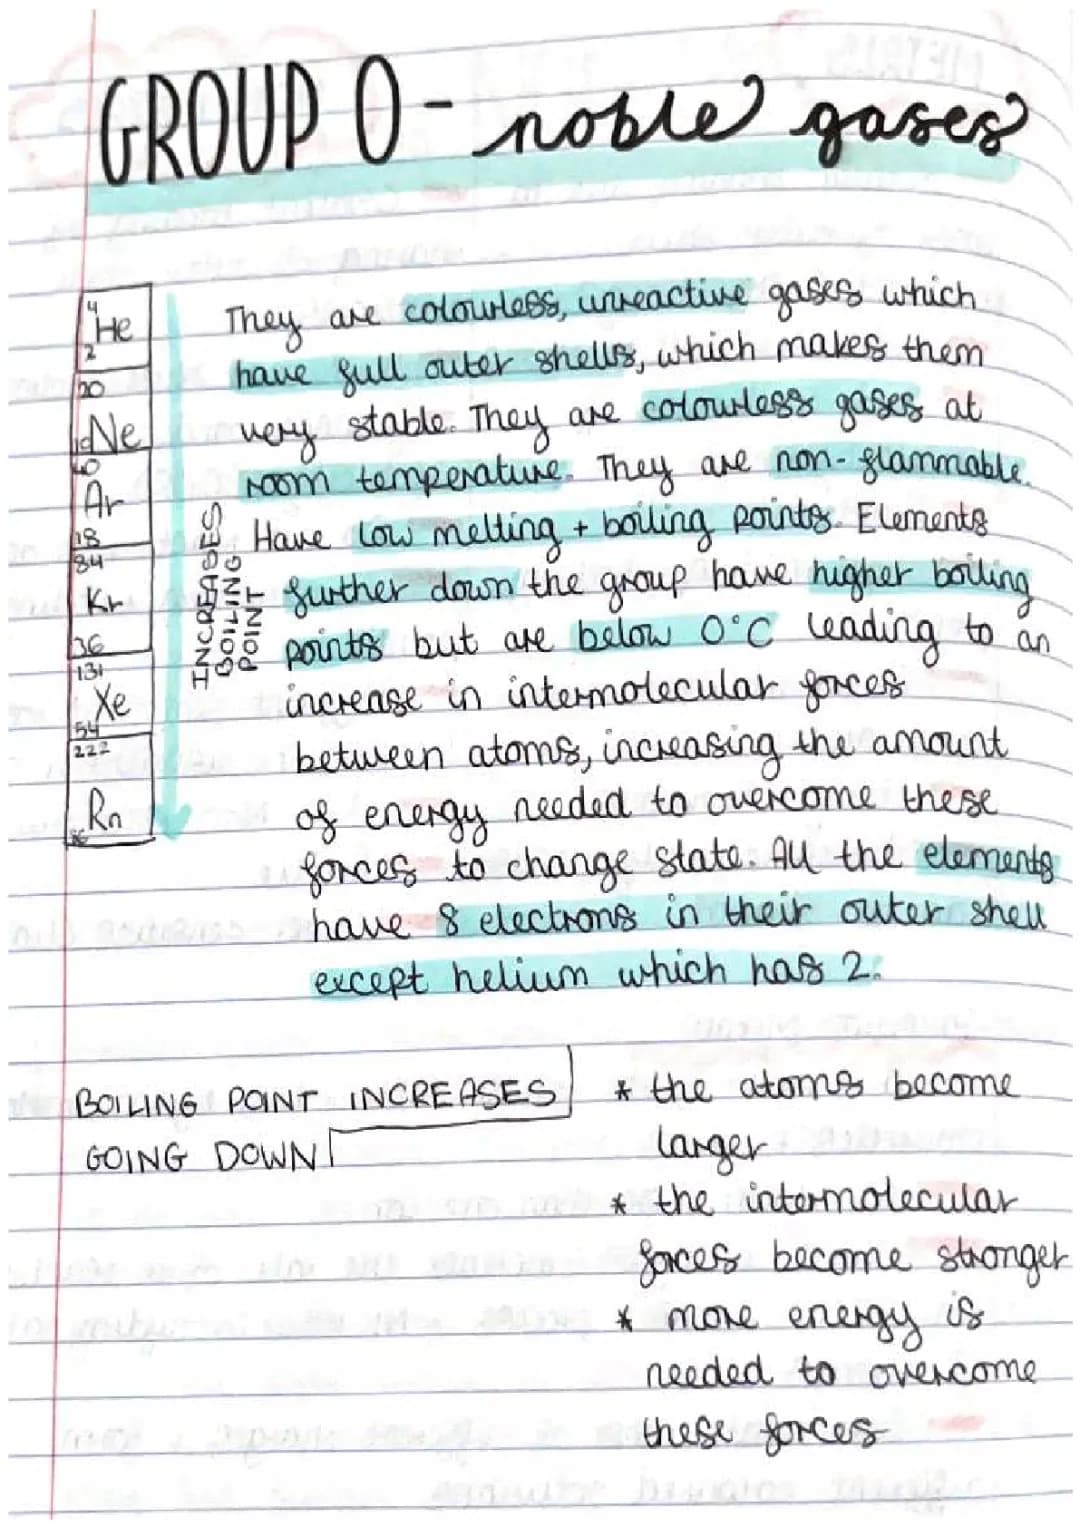 GROUP 0 - noble gases
4
He
2
20
Ne
10
40
Ar
18
84
Kr
36
131
Xe
54
222
Rn
86
INCREASES
BOILING
POINT
They are colourless, unreactive gases which
have full outer shells, which makes them
very stable. They are colourless gases at
room temperature. They are non-flammable.
Have low melting + boiling points. Elements
further down the group have higher boiling
points but are below 0°C leading to an
increase in intermolecular forces
between atoms, increasing the amount
of energy needed to overcome these
forces to change state. All the elements
have 8 electrons in their outer shell
except helium which has 2.
BOILING POINT INCREASES
GOING DOWN
* the atoms become
larger
* the intermolecular
forces become stronger
* more energy is
needed to overcome
these forces